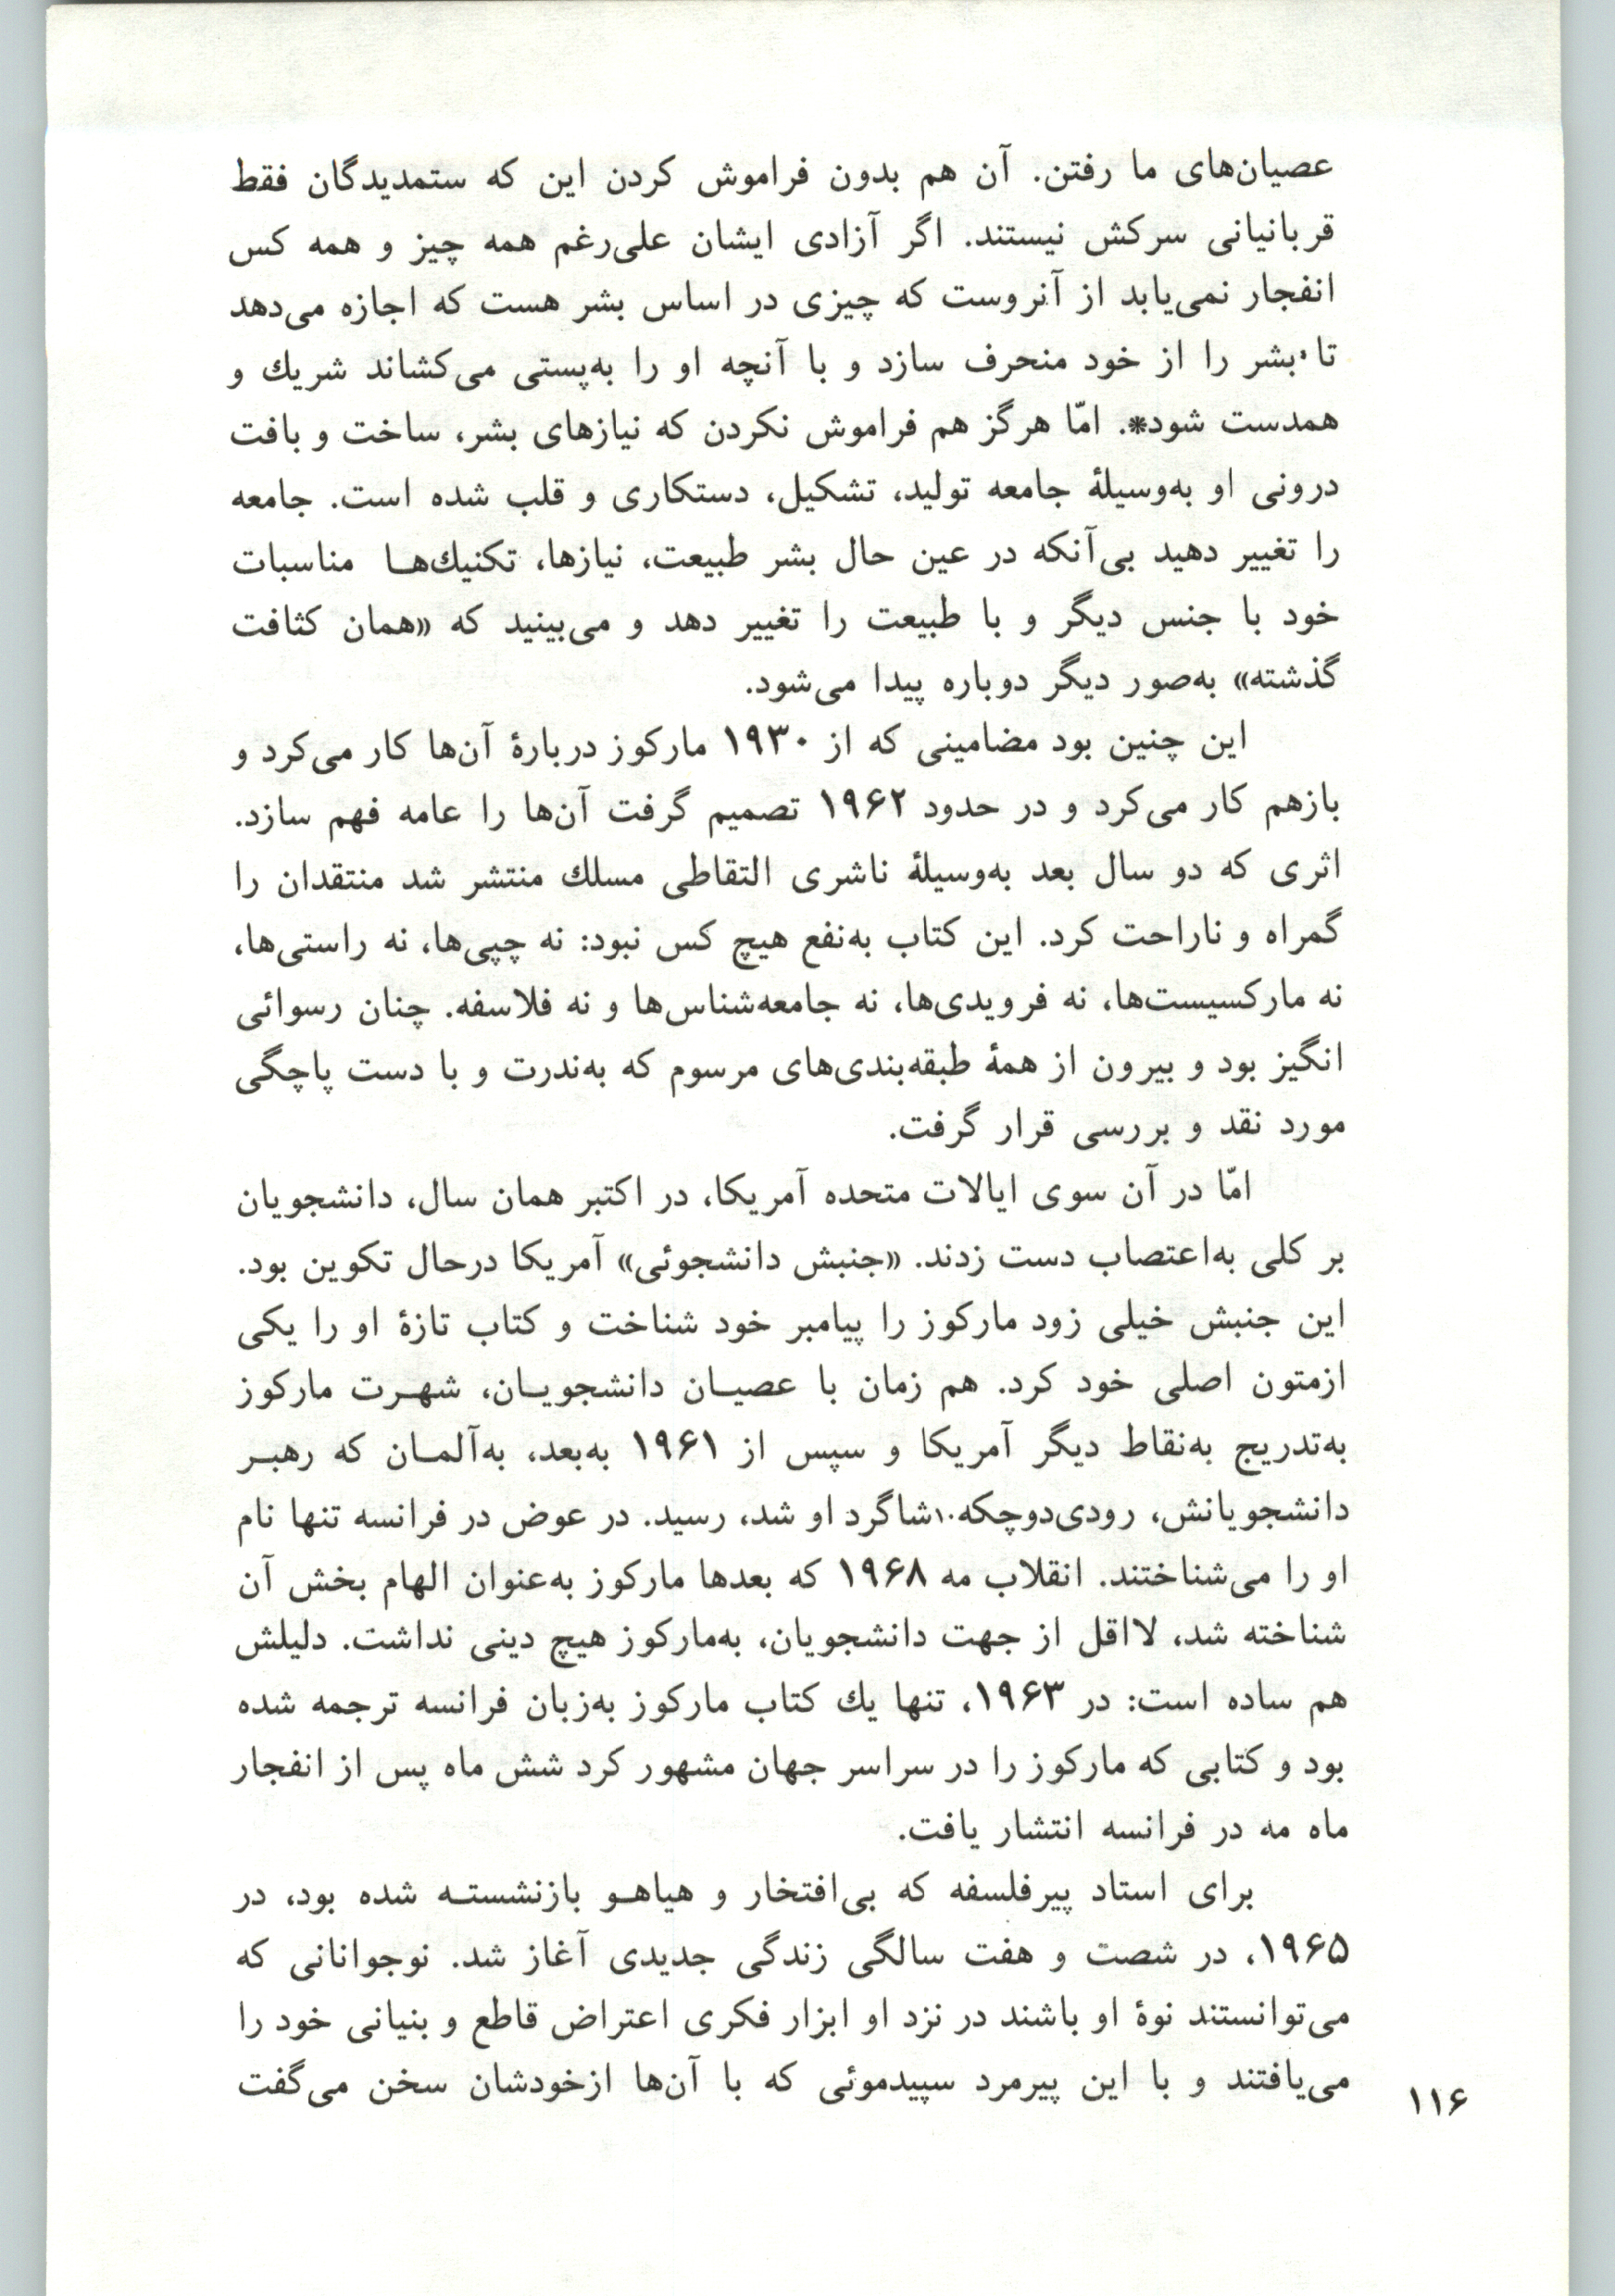 عصیان‌های ما رفتن. آن هم بدون فراموش کردن این که ستمدیدگان فقط
قربانیانی سرکش نیستند. اگر آزادی ایشان علی‌رغم همه چیز و همه کس
انفجار نمی‌یابد از آنروست که چیزی در اساس بشر هست که اجازه می‌دهد
تا بشر را از خود منحرف سازد و با آنچه او را به‌پستی می‌کشاند شریك و
همدست شود*. امّا هرگز هم فراموش نکردن که نیازهای بشر، ساخت و بافت
درونی او به‌وسیلهٔ جامعه تولید، تشکیل، دستکاری و قلب شده است. جامعه
را تغییر دهید بی‌آنکه در عین حال بشر طبیعت، نیازها، تکنیك‌هـا مناسبات
خود با جنس دیگر و با طبیعت را تغییر دهد و می‌بینید که «همان کثافت
گذشته» به‌صور دیگر دوباره پیدا می‌شود.
این چنین بود مضامینی که از ۱۹۳۰ مارکوز دربارهٔ آن‌ها کار می‌کرد و
بازهم کار می‌کرد و در حدود ۱۹۶۲ تصمیم گرفت آن‌ها را عامه فهم سازد.
اثری که دو سال بعد به‌وسیلهٔ ناشری التقاطی مسلك منتشر شد منتقدان را
گمراه و ناراحت کرد. این کتاب به‌نفع هیچ کس نبود: نه چپی‌ها، نه راستی‌ها،
نه مارکسیست‌ها، نه فرویدی‌ها، نه جامعه‌شناس‌ها و نه فلاسفه. چنان رسوائی
انگیز بود و بیرون از همهٔ طبقه‌بندی‌های مرسوم که به‌ندرت و با دست پاچگی
مورد نقد و بررسی قرار گرفت.
امّا در آن سوی ایالات متحده آمریکا، در اکتبر همان سال، دانشجویان
بر کلی به‌اعتصاب دست زدند. «جنبش دانشجوئی» آمریکا درحال تکوین بود.
این جنبش خیلی زود مارکوز را پیامبر خود شناخت و کتاب تازهٔ او را یکی
ازمتون اصلی خود کرد. هم زمان با عصیـان دانشجویـان، شهـرت مارکوز
به‌تدریج به‌نقاط دیگر آمریکا و سپس از ۱۹۶۱ به‌بعد، به‌آلمـان که رهبـر
دانشجویانش، رودی‌دوچکه۱۰شاگرد او شد، رسید. در عوض در فرانسه تنها نام
او را می‌شناختند. انقلاب مه ۱۹۶۸ که بعدها مارکوز به‌عنوان الهام بخش آن
شناخته شد، لااقل از جهت دانشجویان، به‌مارکوز هیچ دینی نداشت. دلیلش
هم ساده است: در ۱۹۶۳، تنها یك کتاب مارکوز به‌زبان فرانسه ترجمه شده
بود و کتابی که مارکوز را در سراسر جهان مشهور کرد شش ماه پس از انفجار
ماه مه در فرانسه انتشار یافت.
برای استاد پیرفلسفه که بی‌افتخار و هیاهـو بازنشستـه شده بود، در
۱۹۶۵، در شصت و هفت سالگی زندگی جدیدی آغاز شد. نوجوانانی که
می‌توانستند نوهٔ او باشند در نزد او ابزار فکری اعتراض قاطع و بنیانی خود را
می‌یافتند و با این پیرمرد سپیدموئی که با آن‌ها ازخودشان سخن می‌گفت
۱۱۶